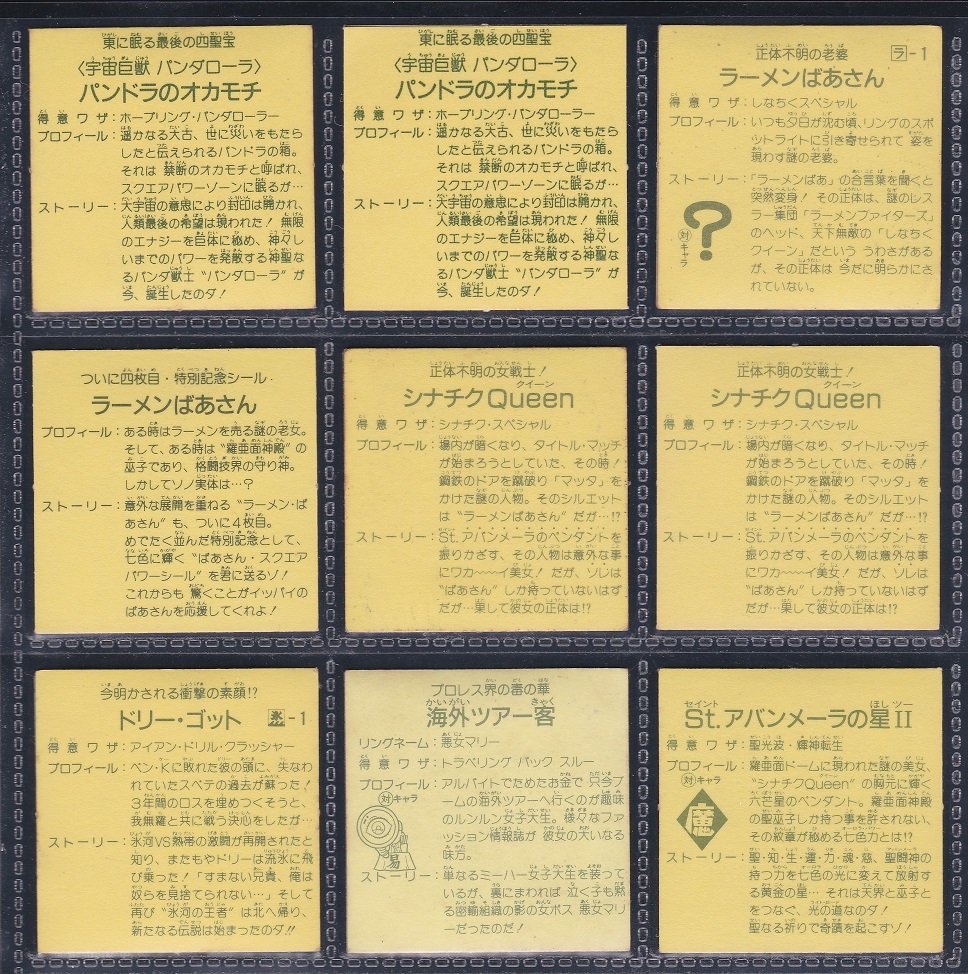 東に眠る最後の四聖宝
〈宇宙巨獣 パンダローラ〉
パンドラのオカモチ
得意ワザ：ホープリング・パンダローラー
プロフィール：遥かなる太古、世に災いをもたら
したと伝えられるパンドラの箱。
それは 禁断のオカモチと呼ばれ、
スクエアパワーゾーンに眠るが…
ストーリー：大宇宙の意思により封印は開かれ、
人類最後の希望は現われた！無限
のエナジーを巨体に秘め、神々し
いまでのパワーを発散する神聖な
なるパンダ獣士“パンダローラ”が
今、誕生したのダ！
東に眠る最後の四聖宝
〈宇宙巨獣 パンダローラ〉
パンドラのオカモチ
得意ワザ：ホープリング・パンダローラー
プロフィール：遥かなる太古、世に災いをもたら
したと伝えられるパンドラの箱。
それは 禁断のオカモチと呼ばれ、
スクエアパワーゾーンに眠るが…
ストーリー：大宇宙の意思により封印は開かれ、
人類最後の希望は現われた！無限
のエナジーを巨体に秘め、神々し
いまでのパワーを発散する神聖
なるパンダ獣士“パンダローラ”が
今、誕生したのダ！
正体不明の老婆
ラ-1
ラーメンばあさん
得意ワザ：しなちくスペシャル
プロフィール：いつも夕日が沈む頃、リングのスポ
ットライトに引き寄せられて 姿を
現わす謎の老婆。
ストーリー：「ラーメンばあ」の合言葉を聞くと
突然変身！ その正体は、謎のレス
ラー集団「ラーメンファイターズ」
のヘッド、天下無敵の「しなちく
クイーン」だという うわさがある
が、その正体は 今だに明らかにさ
れていない。
対キャラ
？
ついに四枚目・特別記念シール・
ラーメンばあさん
プロフィール：ある時はラーメンを売る謎の老女。
そして、ある時は“羅亜面神殿”の
巫子であり、格闘技界の守り神。
しかしてソノ実体は…？
ストーリー：意外な展開を重ねる“ラーメン・ば
あさん”も、ついに4枚目。
めでたく並んだ特別記念として、
七色に輝く“ばあさん・スクエア
パワーシール”を君に送るゾ！
これからも 驚くことがイッパイの
ばあさんを応援してくれよ！
正体不明の女戦士！
クイーン
シナチクQueen
得意ワザ：シナチク・スペシャル
プロフィール：場内が暗くなり、タイトル・マッチ
が始まろうとしていた、その時！
鋼鉄のドアを蹴破り「マッタ」を
かけた謎の人物。そのシルエット
は“ラーメンばあさん”だが…!?
ストーリー：St.アバンメーラのペンダントを
振りかざす、その人物は意外な事
にワカ〜〜イ美女！ だが、ソレは
“ばあさん”しか持っていないはず
だが…果して彼女の正体は!?
正体不明の女戦士！
クイーン
シナチクQueen
得意ワザ：シナチク・スペシャル
プロフィール：場内が暗くなり、タイトル・マッチ
が始まろうとしていた、その時！
鋼鉄のドアを蹴破り「マッタ」を
かけた謎の人物。そのシルエット
は“ラーメンばあさん”だが…!?
ストーリー：St.アバンメーラのペンダントを
振りかざす、その人物は意外な事
にワカ〜〜イ美女！ だが、ソレは
“ばあさん”しか持っていないはず
だが…果して彼女の正体は!?
今明かされる衝撃の素顔!?
ドリー・ゴット
氷-1
得意ワザ：アイアン・ドリル・クラッシャー
プロフィール：ベン・Kに敗れた彼の頭に、失なわ
れていたスベテの過去が蘇った！
3年間のロスを埋めつくそうと、
我無羅と共に戦う決心をしたが…
ストーリー：氷河VS熱帯の激闘が再開されたと
知り、またもやドリーは流氷に飛
び乗った！「すまない兄貴、俺は
奴らを見捨てられない…」そして
再び“氷河の王者”は北へ帰り、
新たなる伝説は始まったのダ!!
プロレス界の毒の華
かいがい きゃく
海外ツアー客
リングネーム：悪女マリー
得意ワザ：トラベリング バック スルー
プロフィール：アルバイトでためたお金で 只今ブ
ームの海外ツアーへ行くのが趣味
のルンルン女子大生。様々なファ
ッション情報誌が 彼女の大いなる
味方。
対キャラ
易
ストーリー：単なるミーハー女子大生を装って
いるが、裏にまわれば 泣く子も黙
る密輸組織の影の女ボス 悪女マリ
ーだったのだ！
セイント ほしツー
St.アバンメーラの星II
得意ワザ：聖光波・輝神転生
プロフィール：羅亜面ドームに現われた謎の美女、
“シナチクQueen”の胸元に輝く
六芒星のペンダント。羅亜面神殿
の聖巫子しか持つ事を許されない、
その紋章が秘める七色力とは!?
対キャラ
ストーリー：聖・知・生・運・力・魂・慈、聖闘神の
持つ力を七色の光に変えて放射す
る黄金の星… それは天界と巫子と
をつなぐ、光の道なのダ！
聖なる祈りで奇蹟を起こすゾ！